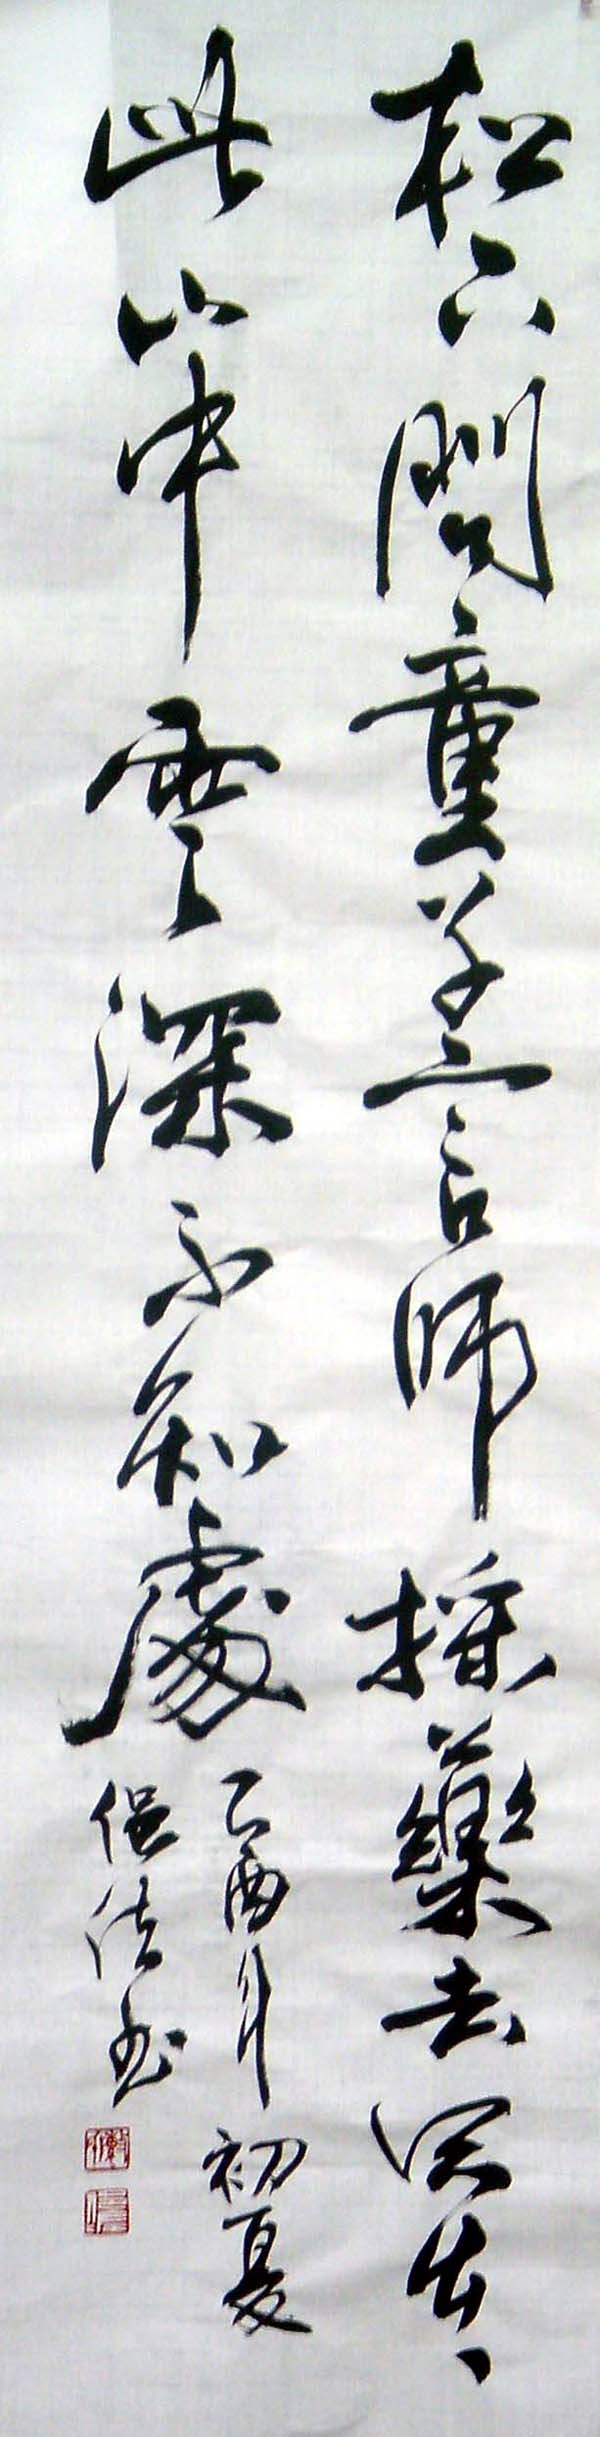 松下問童子言師採藥去只在
此山中雲深不知處
乙酉年初夏
保法书